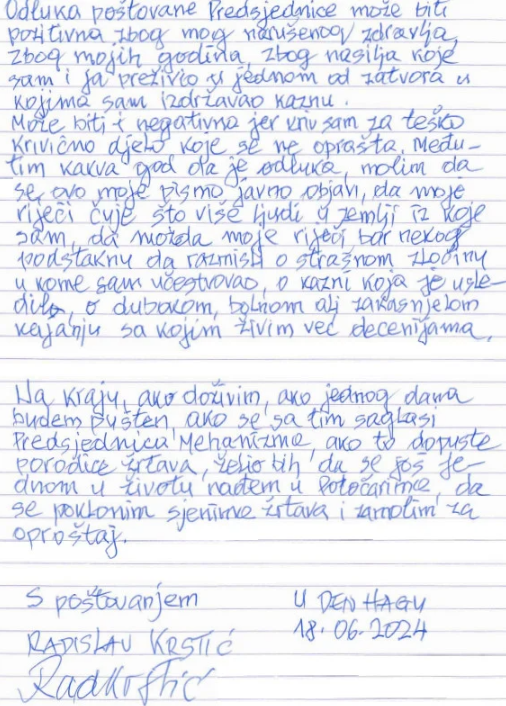 Odluka poštovane Predsjednice može biti
pozitivna zbog mog narušenog zdravlja,
zbog mojih godina, zbog nasilja koje
sam i ja preživio u jednom od zatvora u
kojima sam izdržavao kaznu.
Može biti i negativna jer kriv sam za teško
krivično djelo koje se ne oprašta. Među-
tim kakva god da je odluka, molim da
se ovo moje pismo javno objavi, da moje
riječi čuje što više ljudi u zemlji iz koje
sam, da možda moje riječi bar nekog
podstaknu da razmisli o strašnom zločinu
u kome sam učestvovao, o kazni koja je uslje-
dila, o dubokom, bolnom ali zakasnjelom
kajanju sa kojim živim već decenijama.
Na kraju, ako doživim, ako jednog dana
budem pušten, ako se sa tim saglasi
Predsjednica Mehanizma, ako to dopuste
porodice žrtava, želio bih da se još je-
dnom u životu nađem u Potočarima, da
se poklonim sjenima žrtava i zamolim za
oproštaj.
S poštovanjem
U DEN HAGU
18.06.2024
RADISLAV KRSTIĆ
RadKrstić